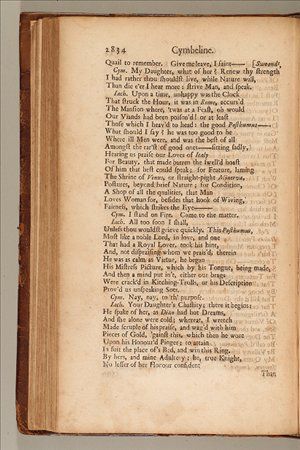 2834 Cymbeline.
Quail to remember. Give me leave, I faint—— [Swoonds.
Cym. My Daughter, what of her? Renew thy strength
I had rather thou shouldst live, while Nature will,
Than die e'er I hear more: strive Man, and speak.
Iach. Upon a time, unhappy was the Clock
That struck the Hour, it was in Rome, accurs'd
The Mansion where, 'twas at a Feast, oh would
Our Viands had been poison'd! or at least
Those which I heav'd to head: the good Posthumus——
What should I say? he was too good to be
Where ill Men were, and was the best of all
Amongst the rar'st of good ones——sitting sadly,
Hearing us praise our Loves of Italy
For Beauty, that made barren the swell'd boast
Of him that best could speak; for Feature, laming
The Shrine of Venus, or straight-pight Minerva,
Postures, beyond brief Nature; for Condition,
A Shop of all the qualities, that Man
Loves Woman for, besides that hook of Wiving,
Fairness, which strikes the Eye——
Cym. I stand on Fire. Come to the matter.
Iach. All too soon I shall,
Unless thou wouldst grieve quickly. This Posthumus,
Most like a noble Lord, in love, and one
That had a Royal Lover, took his hint,
And, not dispraising whom we prais'd, therein
He was as calm as Virtue, he began
His Mistress Picture, which by his Tongue, being made,
And then a mind put in't, either our brags
Were crack'd in Kitching-Trulls, or his Description
Prov'd us unspeaking Sots.
Cym. Nay, nay, to th' purpose.
Iach. Your Daughter's Chastity; there it begins;
He spake of her, as Dian had hot Dreams,
And she alone were cold; whereat, I wretch
Made scruple of his praise, and wag'd with him
Pieces of Gold, 'gainst this, which then he wore
Upon his Honour'd Finger; to attain
In suit the place of's Bed, and win this Ring,
By hers, and mine Adultery; he, true Knight,
No lesser of her Honour confident
Than